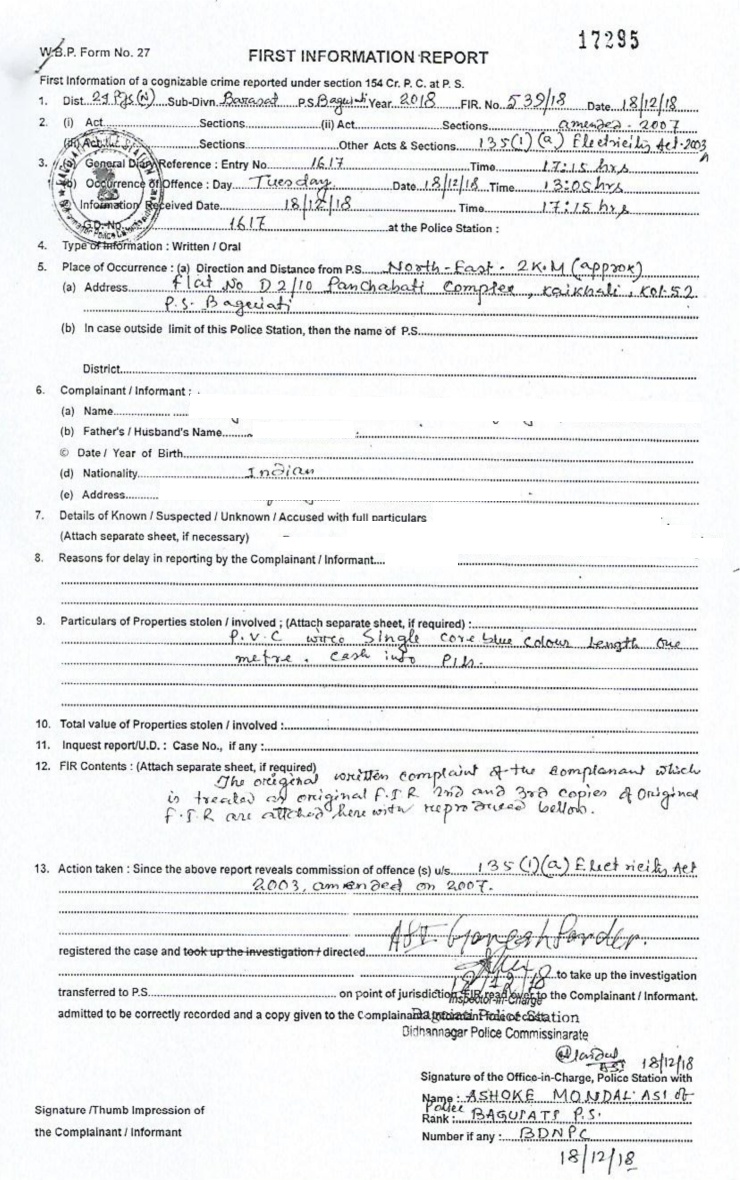 17295
W.B.P. Form No. 27
FIRST INFORMATION REPORT
First Information of a cognizable crime reported under section 154 Cr. P. C. at P. S.
1. Dist. 24 Pgs (N) Sub-Divn. Barasat P.S. Baguiati Year 2018 FIR. No. 539/18 Date 18/12/18
2. (i) Act Sections (ii) Act Sections amended - 2007
(iii) Act Sections Other Acts & Sections 135(1)(a) Electricity Act-2003
3. (a) General Diary Reference : Entry No 1617 Time 17:15 hrs
(b) Occurrence of Offence : Day Tuesday Date 18/12/18 Time 13:05 hrs
Information Received Date 18/12/18 Time 17:15 hrs
G.D. No. 1617 at the Police Station :
4. Type of Information : Written / Oral
5. Place of Occurrence : (a) Direction and Distance from P.S. North-East - 2 K.M (approx)
(a) Address Flat No D 2/10 Panchabati Complex, Kaikhali, Kol-52
P.S. Baguiati
(b) In case outside limit of this Police Station, then the name of P.S.
District
6. Complainant / Informant :
(a) Name
(b) Father's / Husband's Name
© Date / Year of Birth
(d) Nationality Indian
(e) Address
7. Details of Known / Suspected / Unknown / Accused with full particulars
(Attach separate sheet, if necessary) –
8. Reasons for delay in reporting by the Complainant / Informant
9. Particulars of Properties stolen / involved ; (Attach separate sheet, if required) :
P.V.C wire Single core blue colour Length one
metre. cash into
10. Total value of Properties stolen / involved :
11. Inquest report/U.D. : Case No., if any :
12. FIR Contents : (Attach separate sheet, if required)
The original written complaint of the complanant which
is treated as original F.I.R 2nd and 3rd copies of Original
F.I.R are attched here with reproduced bellow.
13. Action taken : Since the above report reveals commission of offence (s) u/s. 135(1)(a) Electricity Act
2003, amended on 2007.
ASI. Ganesh
registered the case and took up the investigation / directed
18/12/18 to take up the investigation
transferred to P.S. on point of jurisdiction FIR read over to the Complainant / Informant.
Inspector-in-Charge
admitted to be correctly recorded and a copy given to the Complainant
Baguiati Police Station
Bidhannagar Police Commissinarate
ASI 18/12/18
Signature of the Office-in-Charge, Police Station with
Name : ASHOKE MONDAL ASI of
Police
Rank : BAGUIATI P.S.
Signature /Thumb Impression of
the Complainant / Informant
Number if any : BDNPC
18/12/18